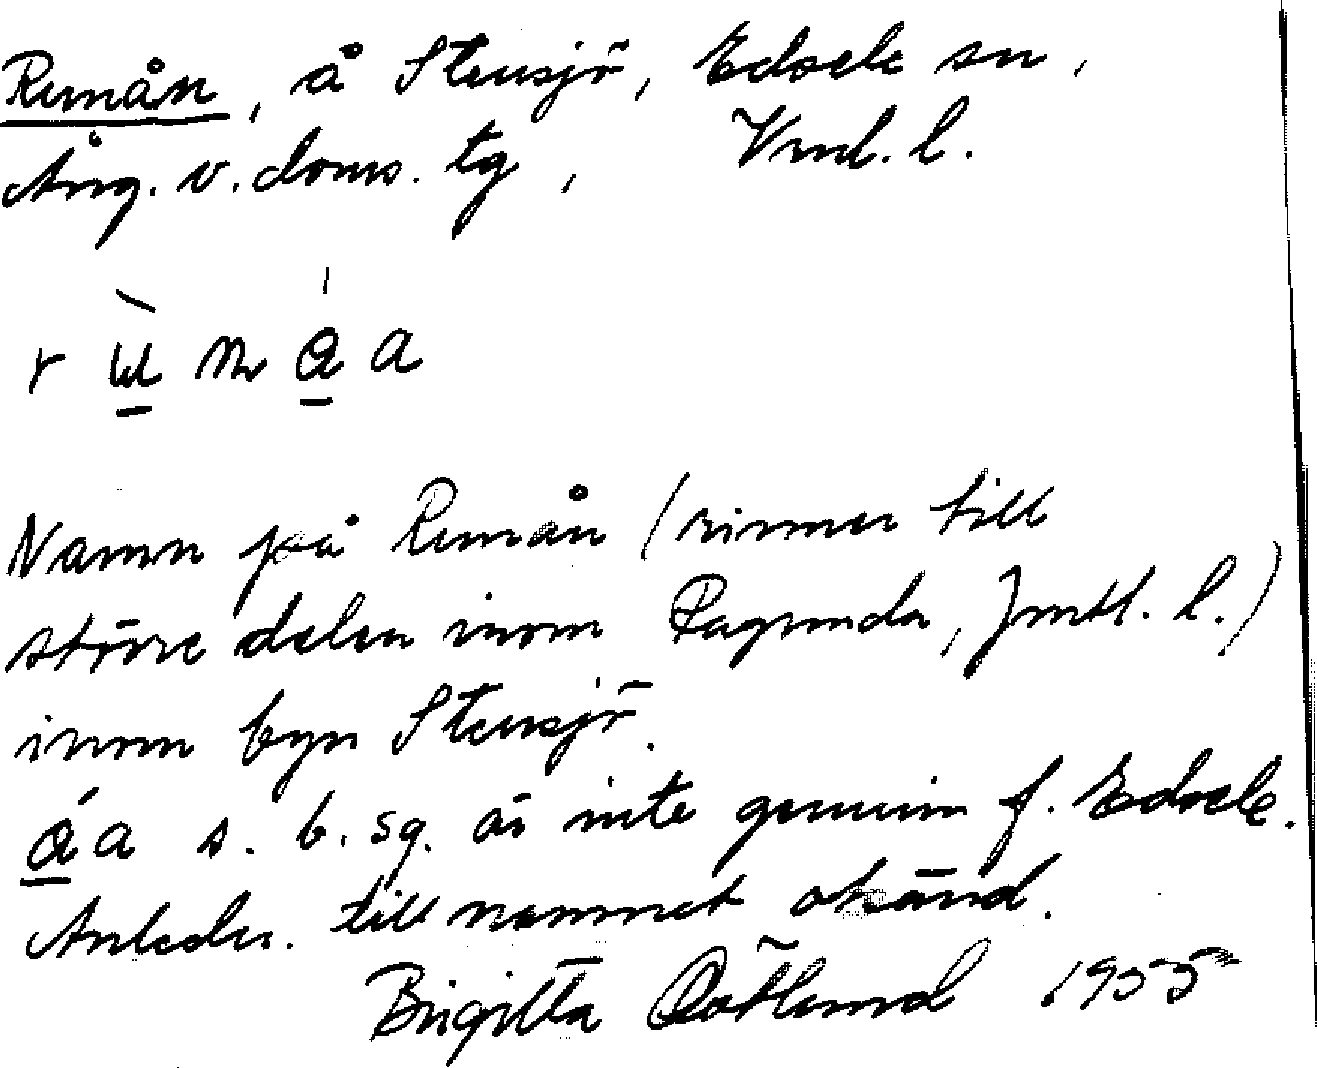 Rumån, å Stensjö, Edsele sn,
Ång. v. doms. tg, Vnl. l.
r ù m ǻ a
Namn på Rumån (rinner till
större delen inom Ragunda, Jmtl. l.)
inom byn Stensjö.
á̱ a s. b. sg. är inte genuin f. Edsele.
Anledn. till namnet okänd.
Birgitta 1955